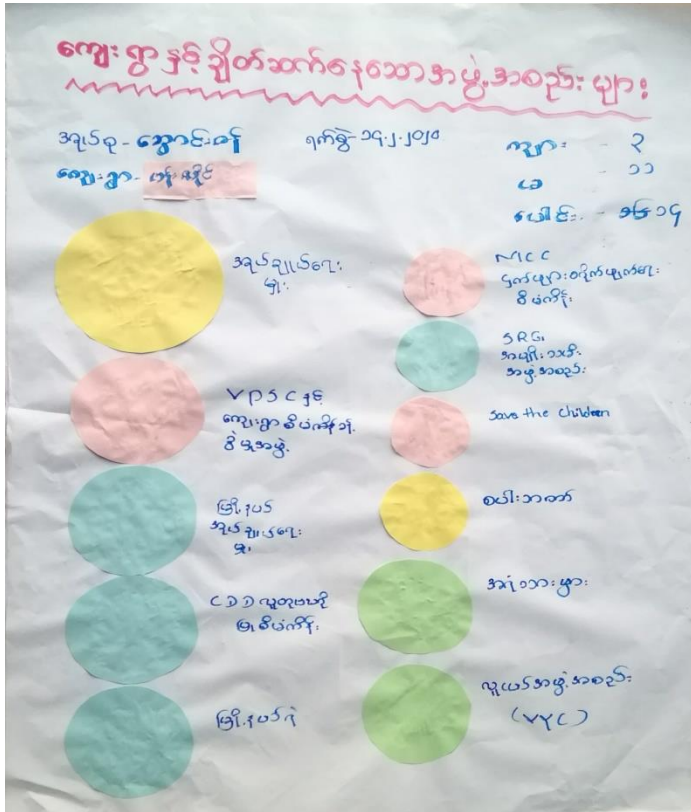 ကျေးရွာနှင့်ချိတ်ဆက်နေသောအဖွဲ့အစည်းများ
အုပ်စု - အောင်းခန် ရက်စွဲ - ၁၄.၂.၂၀၂၀
ကျေးရွာ -
ကျား - ၃
မ - ၁၁
ပေါင်း - ၁၄
အုပ်ချုပ်ရေး
မှူး
VPSC နှင့်
ကျေးရွာစီမံကိန်း
အဖွဲ့
မြို့နယ်
အုပ်ချုပ်ရေး
မှူး
CDD လူထုဗဟို
ပြုစီမံကိန်း
မြို့နယ်ရဲ
MCC
ငှက်ဖျားတိုက်ဖျက်ရေး
စီမံကိန်း
SRG
အမျိုးသမီး
အဖွဲ့အစည်း
Save the Children
စပါးဘဏ်
အရံသားများ
လူငယ်အဖွဲ့အစည်း
(VYC)